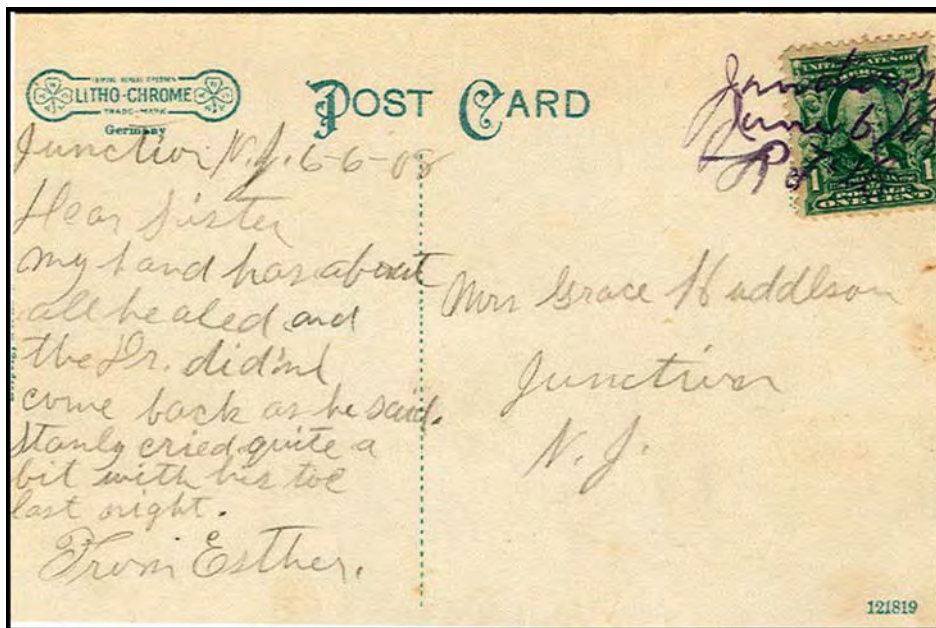 LITHO-CHROME
TRADE-MARK
Germany
POST CARD
UNITED STATES OF
1
ONE CENT
June 6
Junction N.J. 6-6-08
Dear Sister
my hand has about
all healed and
the Dr. did'nt
come back as he said.
Stanly cried quite a
bit with his toe
last night.
From Esther.
Mrs Grace Huddlson
Junction
N. J.
121819